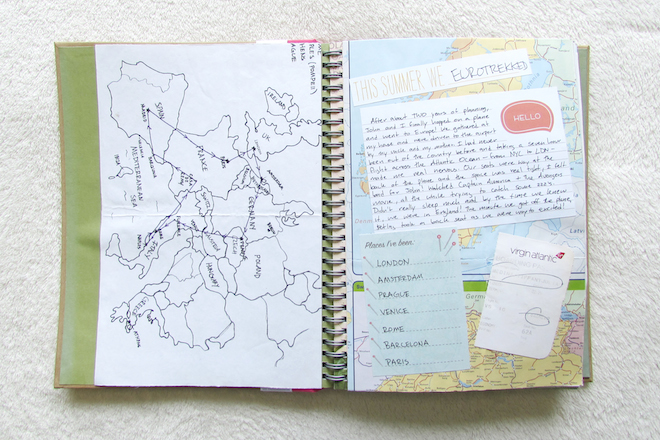 THIS SUMMER WE EUROTREKKED
After about TWO years of planning,
John and I finally hopped on a plane
and went to Europe! We gathered at
my house and were driven to the airport
by my uncle and my mother. I had never
been out of the country before and taking a seven hour
flight across the Atlantic Ocean - from NYC to LDN -
made me real nervous. Our seats were way at the
back of the plane and the space was real tight; I felt
bad for John! Watched Captain America + The Avengers
movie, all the while trying to catch some zzz's.
Didn't really sleep much and by the time we knew
it, we were in England! The minute we got off the plane,
HELLO
Places I've been:
LONDON
AMSTERDAM
PRAGUE
VENICE
ROME
BARCELONA
PARIS
virgin atlantic
IRELAND
UK
SPAIN
FRANCE
GERMANY
POLAND
CZECH
ITALY
GREECE
HUNGARY
MEDITERRANEAN
SEA
MADRID
BARCELONA
PARIS
AMSTERDAM
ROME